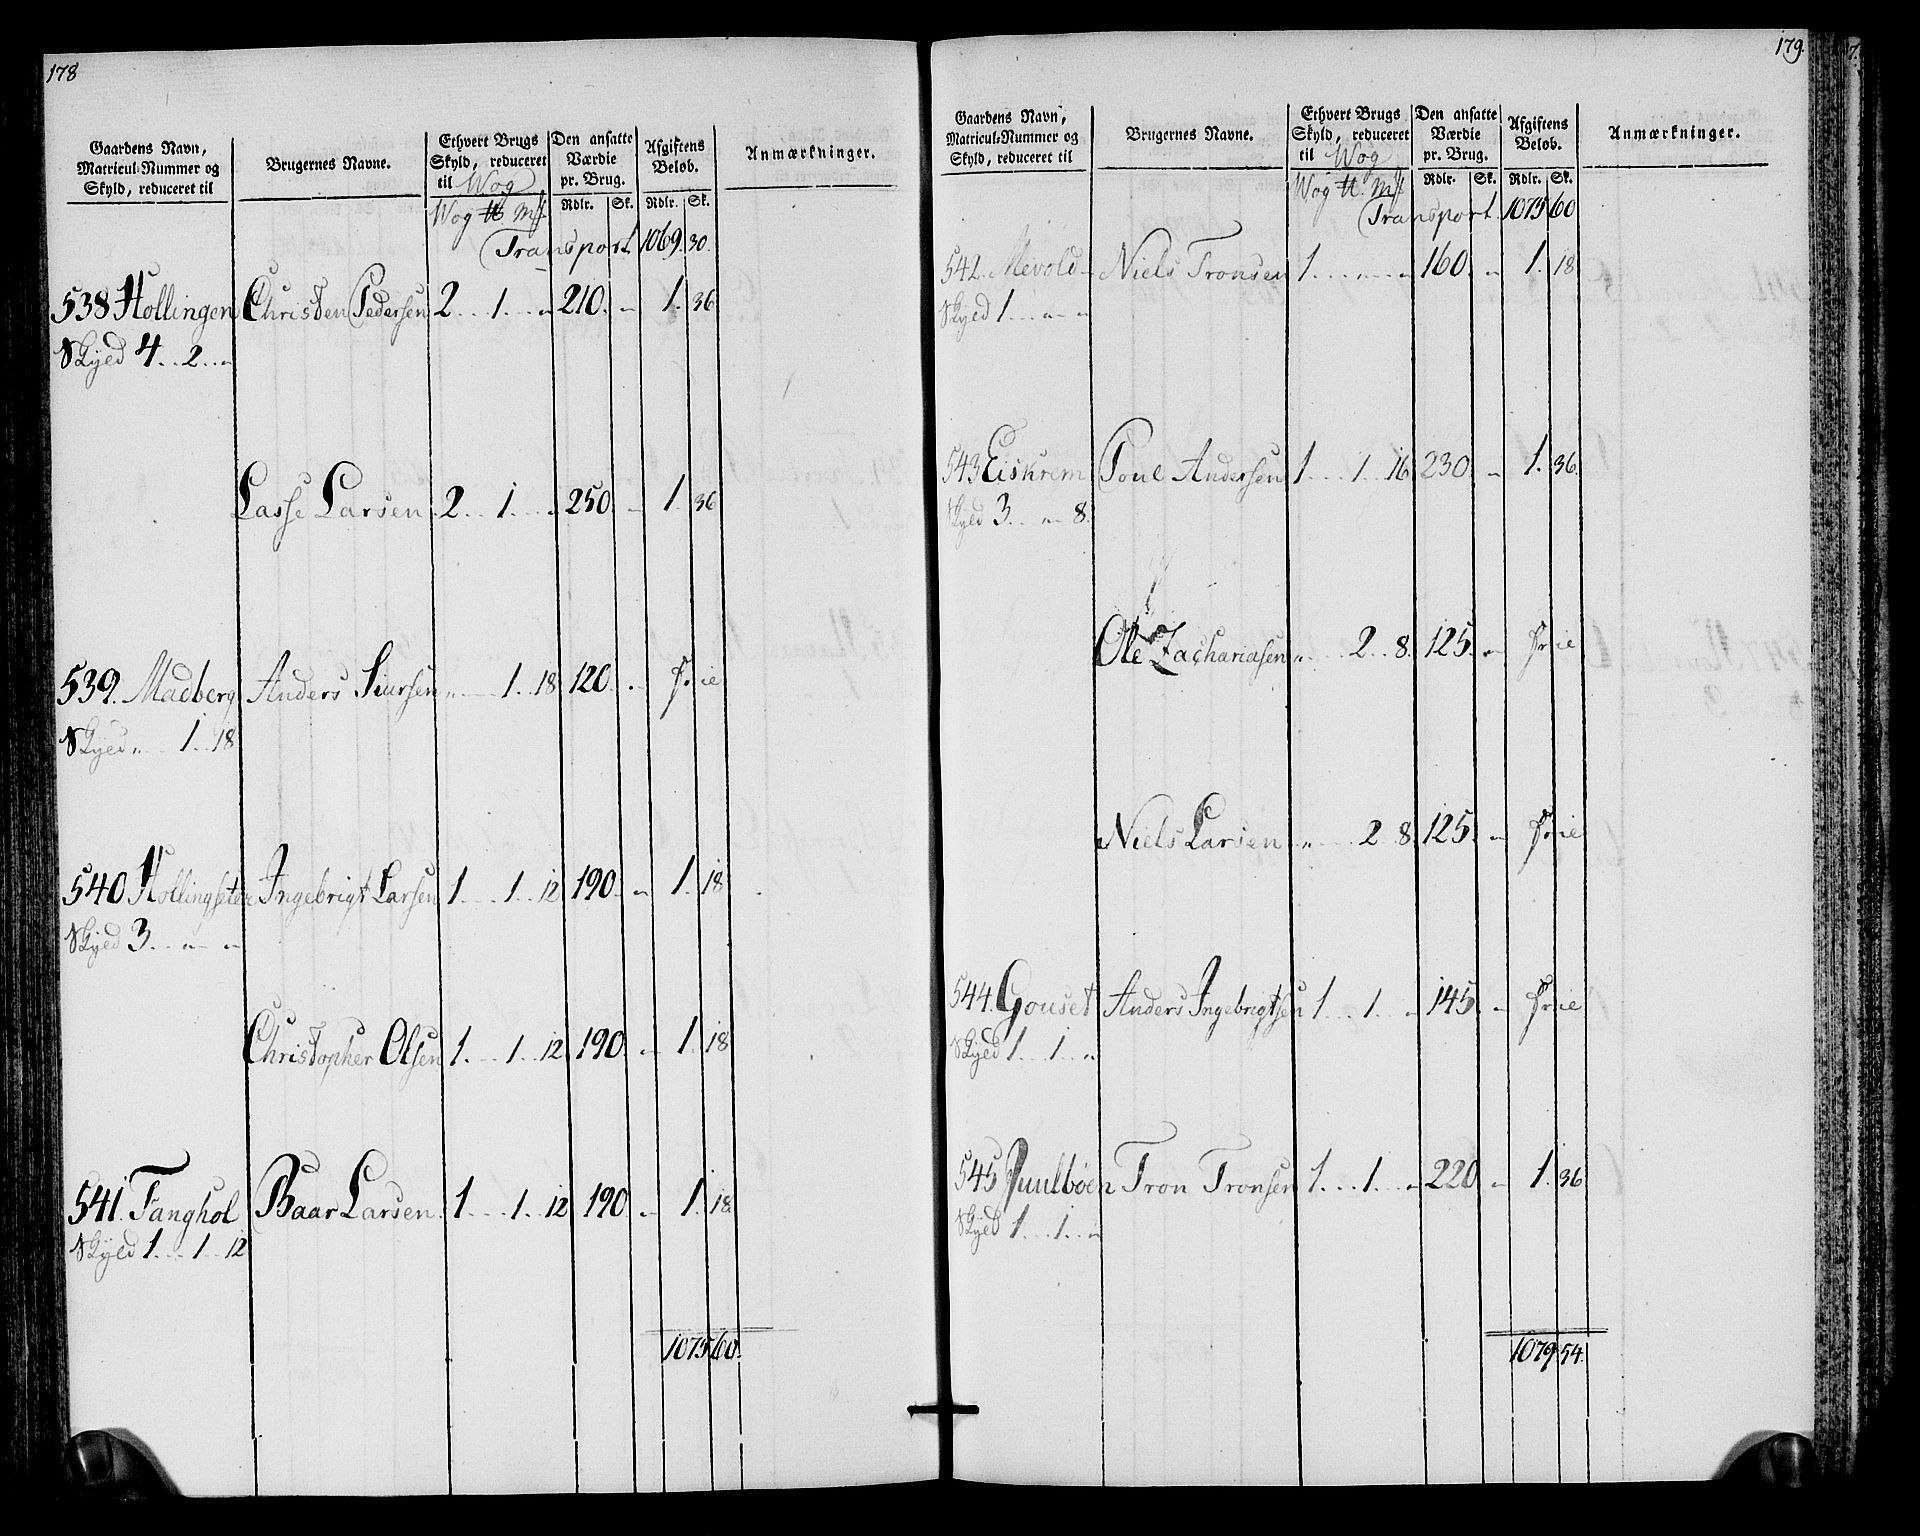 178
Gaardens Navn, Matricul-Nummer og Skyld, reduceret til
Brugernes Navne.
Ethvert Brugs Skyld, reduceret til Wog
Den ansatte Værdie pr. Brug.
Afgiftens Beløb.
Anmærkninger.
Wog ℔ Mk Rdlr. Sk. Rdlr. Sk.
Transport 1069. 30.
538 Hollingen Christen Pedersen 2 . . 1 . . „ 210. „ 1. 36
Skyld 4 . . 2 . . „
Lasse Larsen 2 . . 1 . . „ 250 „ 1. 36
539. Madberg Anders Siursen „ . . 1 . . 18 120 . „ Frie
Skyld „ . . 1 . . 18
540 Hollingsetere Ingebrigt Larsen 1 . . 1 . . 12 190 „ 1. 18
Skyld 3 . . „ . . „
Christopher Olsen 1 . . 1 . . 12 190 „ 1. 18
541. Tanghol Baar Larsen 1 . . 1 . . 12 190 „ 1. 18
Skyld 1 . . 1 . . 12
1075 60.
179.
Gaardens Navn, Matricul-Nummer og Skyld, reduceret til
Brugernes Navne.
Ethvert Brugs Skyld, reduceret til Wog
Den ansatte Værdie pr. Brug.
Afgiftens Beløb.
Anmærkninger.
Wog ℔ Mk Rdlr. Sk. Rdlr. Sk.
Transport 1075 60
542. Mevold Niels Tronsen 1 . . „ . . „ 160. „ 1. 18
Skyld 1 . . „ . . „
543 Eiskrem Poul Andersen 1 . . 1 . . 16 230. „ 1. 36
Skyld 3 . . „ . . 8.
Ole Zachariasen „ . . 2 . . 8. 125. „ Frie
Niels Larsen „ . . 2 . . 8. 125. „ Frie
544. Gouset Anders Ingebrigtsen 1 . . 1 . . „ 145. „ Frie
Skyld 1 . . 1 . . „
545 Juulbøen Tron Tronsen 1 . . 1 . . „ 220 „ 1. 36
Skyld 1 . . 1 . . „
1079 54.